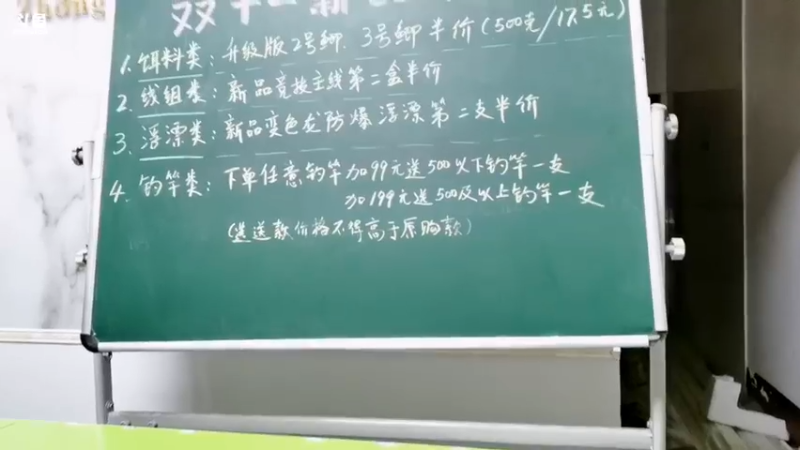 斗鱼
Zhong
双十一新
1. 饵料类：升级版2号鲫、3号鲫半价(500克/17.5元)
2. 线组类：新品竞技主线第二盒半价
3. 浮漂类：新品变色龙防爆浮漂第二支半价
4. 钓竿类：下单任意钓竿加99元送500以下钓竿一支
加199元送500及以上钓竿一支
(选送款价格不得高于原购款)